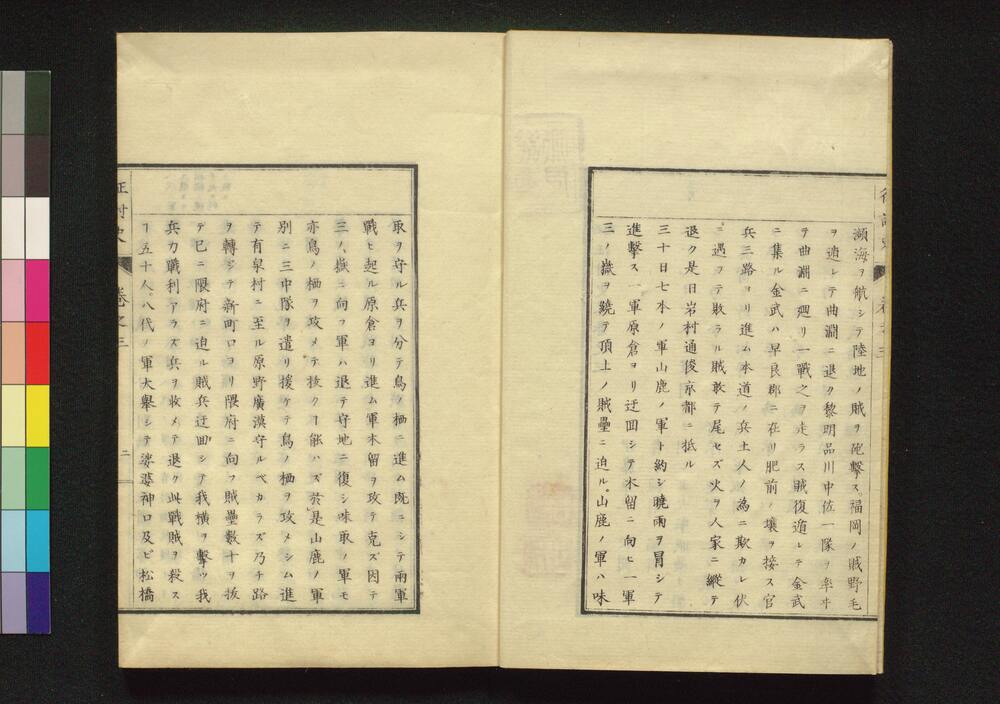 瀕海ヲ航シテ陸地ノ賊ヲ砲撃ス福岡ノ賊野毛
ヲ逋レテ曲淵ニ退ク黎明品川中佐一隊ヲ率ヰ
テ曲淵ニ廻リ一戰之ヲ走ラス賊復遁レテ金武
ニ集ル金武ハ早良郡ニ在リ肥前ノ壤ヲ接ス官
兵三路ヨリ進ム本道ノ兵土人ノ爲ニ欺カレ伏
ニ遇フテ敗ラル賊敢テ尾セズ火ヲ人家ニ縱テ
退ク是日岩村通俊京都ニ抵ル
三十日七本ノ軍山鹿ノ軍ト約シ曉雨ヲ冒シテ
進撃ス一軍原倉ヨリ迂回シテ木留ニ向ヒ一軍
三ノ嶽ヲ繞テ頂上ノ賊壘ニ迫ル山鹿ノ軍ハ味
取ヲ守ル兵ヲ分テ鳥ノ栖ニ進ム既ニシテ兩軍
戰ヒ起ル原倉ヨリ進ム軍木留ヲ攻テ克ズ因テ
三ノ嶽ニ向フ軍ハ退テ守地ニ復シ味取ノ軍モ
亦鳥ノ栖ヲ攻メテ拔クヿ能ハズ於是山鹿ノ軍
別ニ三中隊ヲ遣リ援ケテ鳥ノ栖ヲ攻メシム進
テ有泉村ニ至ル原野廣漠守ルベカラズ乃チ路
ヲ轉ジテ新町口ヨリ隈府ニ向フ賊壘數十ヲ拔
テ已ニ隈府ニ迫ル賊兵迂回シテ我横ヲ撃ツ我
兵力戰利アラズ兵ヲ收メテ退ク此戰賊ヲ殺ス
ヿ五十人八代ノ軍大擧シテ娑婆神口及ビ松橋
征討史
卷之三
二